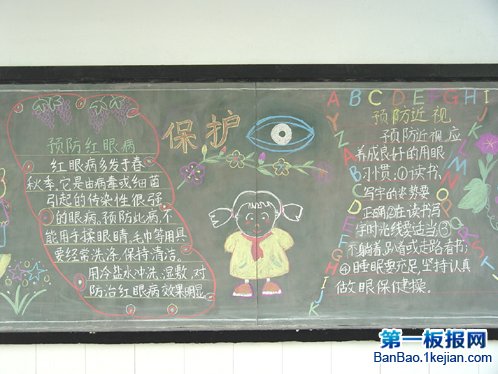 预防红眼病
红眼病多发于春
秋季,它是由病毒或细菌
引起的传染性很强
的眼病,预防此病不
能用手揉眼睛,毛巾等用具
要经常洗涤,保持清洁。
用冷盐水冲洗,湿敷,对
防治红眼病效果明显
保护
A B C D E F G H I
J
K
L
M
N
O
A
Z
Y
X
预防近视
预防近视应
养成良好的用眼
习惯:①读书,
写字的姿势要
正确②在读书写
字时光线要适当③
不躺着
或走路看书;
④睡眠要充足,坚持认真
做眼保健操。
G
H
I
J
K
第一板报网
BanBao.1kejian.com